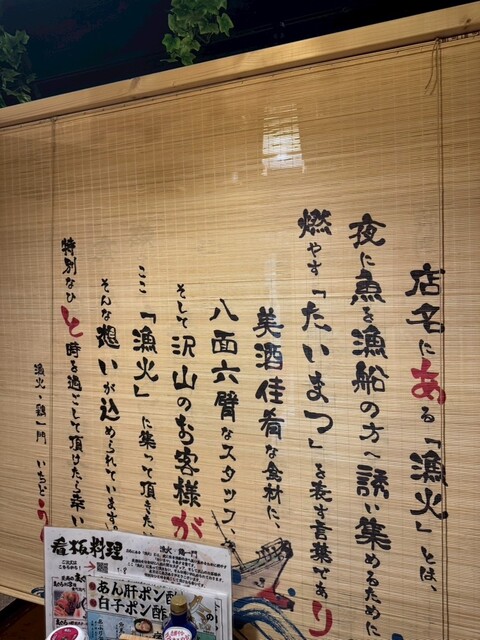 店名にある「漁火」とは、
夜に魚を漁船の方へ誘い集めるために
燃やす「たいまつ」を表す言葉であり
美酒佳肴な食材に、
八面六臂なスタッフ
そして沢山のお客様が
ここ「漁火」に集って頂きた
そんな想いが込められています。
特別なひと時を過ごして頂けたら幸い
漁火・鶏一門 いちど
看板料理
漁火 鶏一門
あん肝ポン酢
白子ポン酢